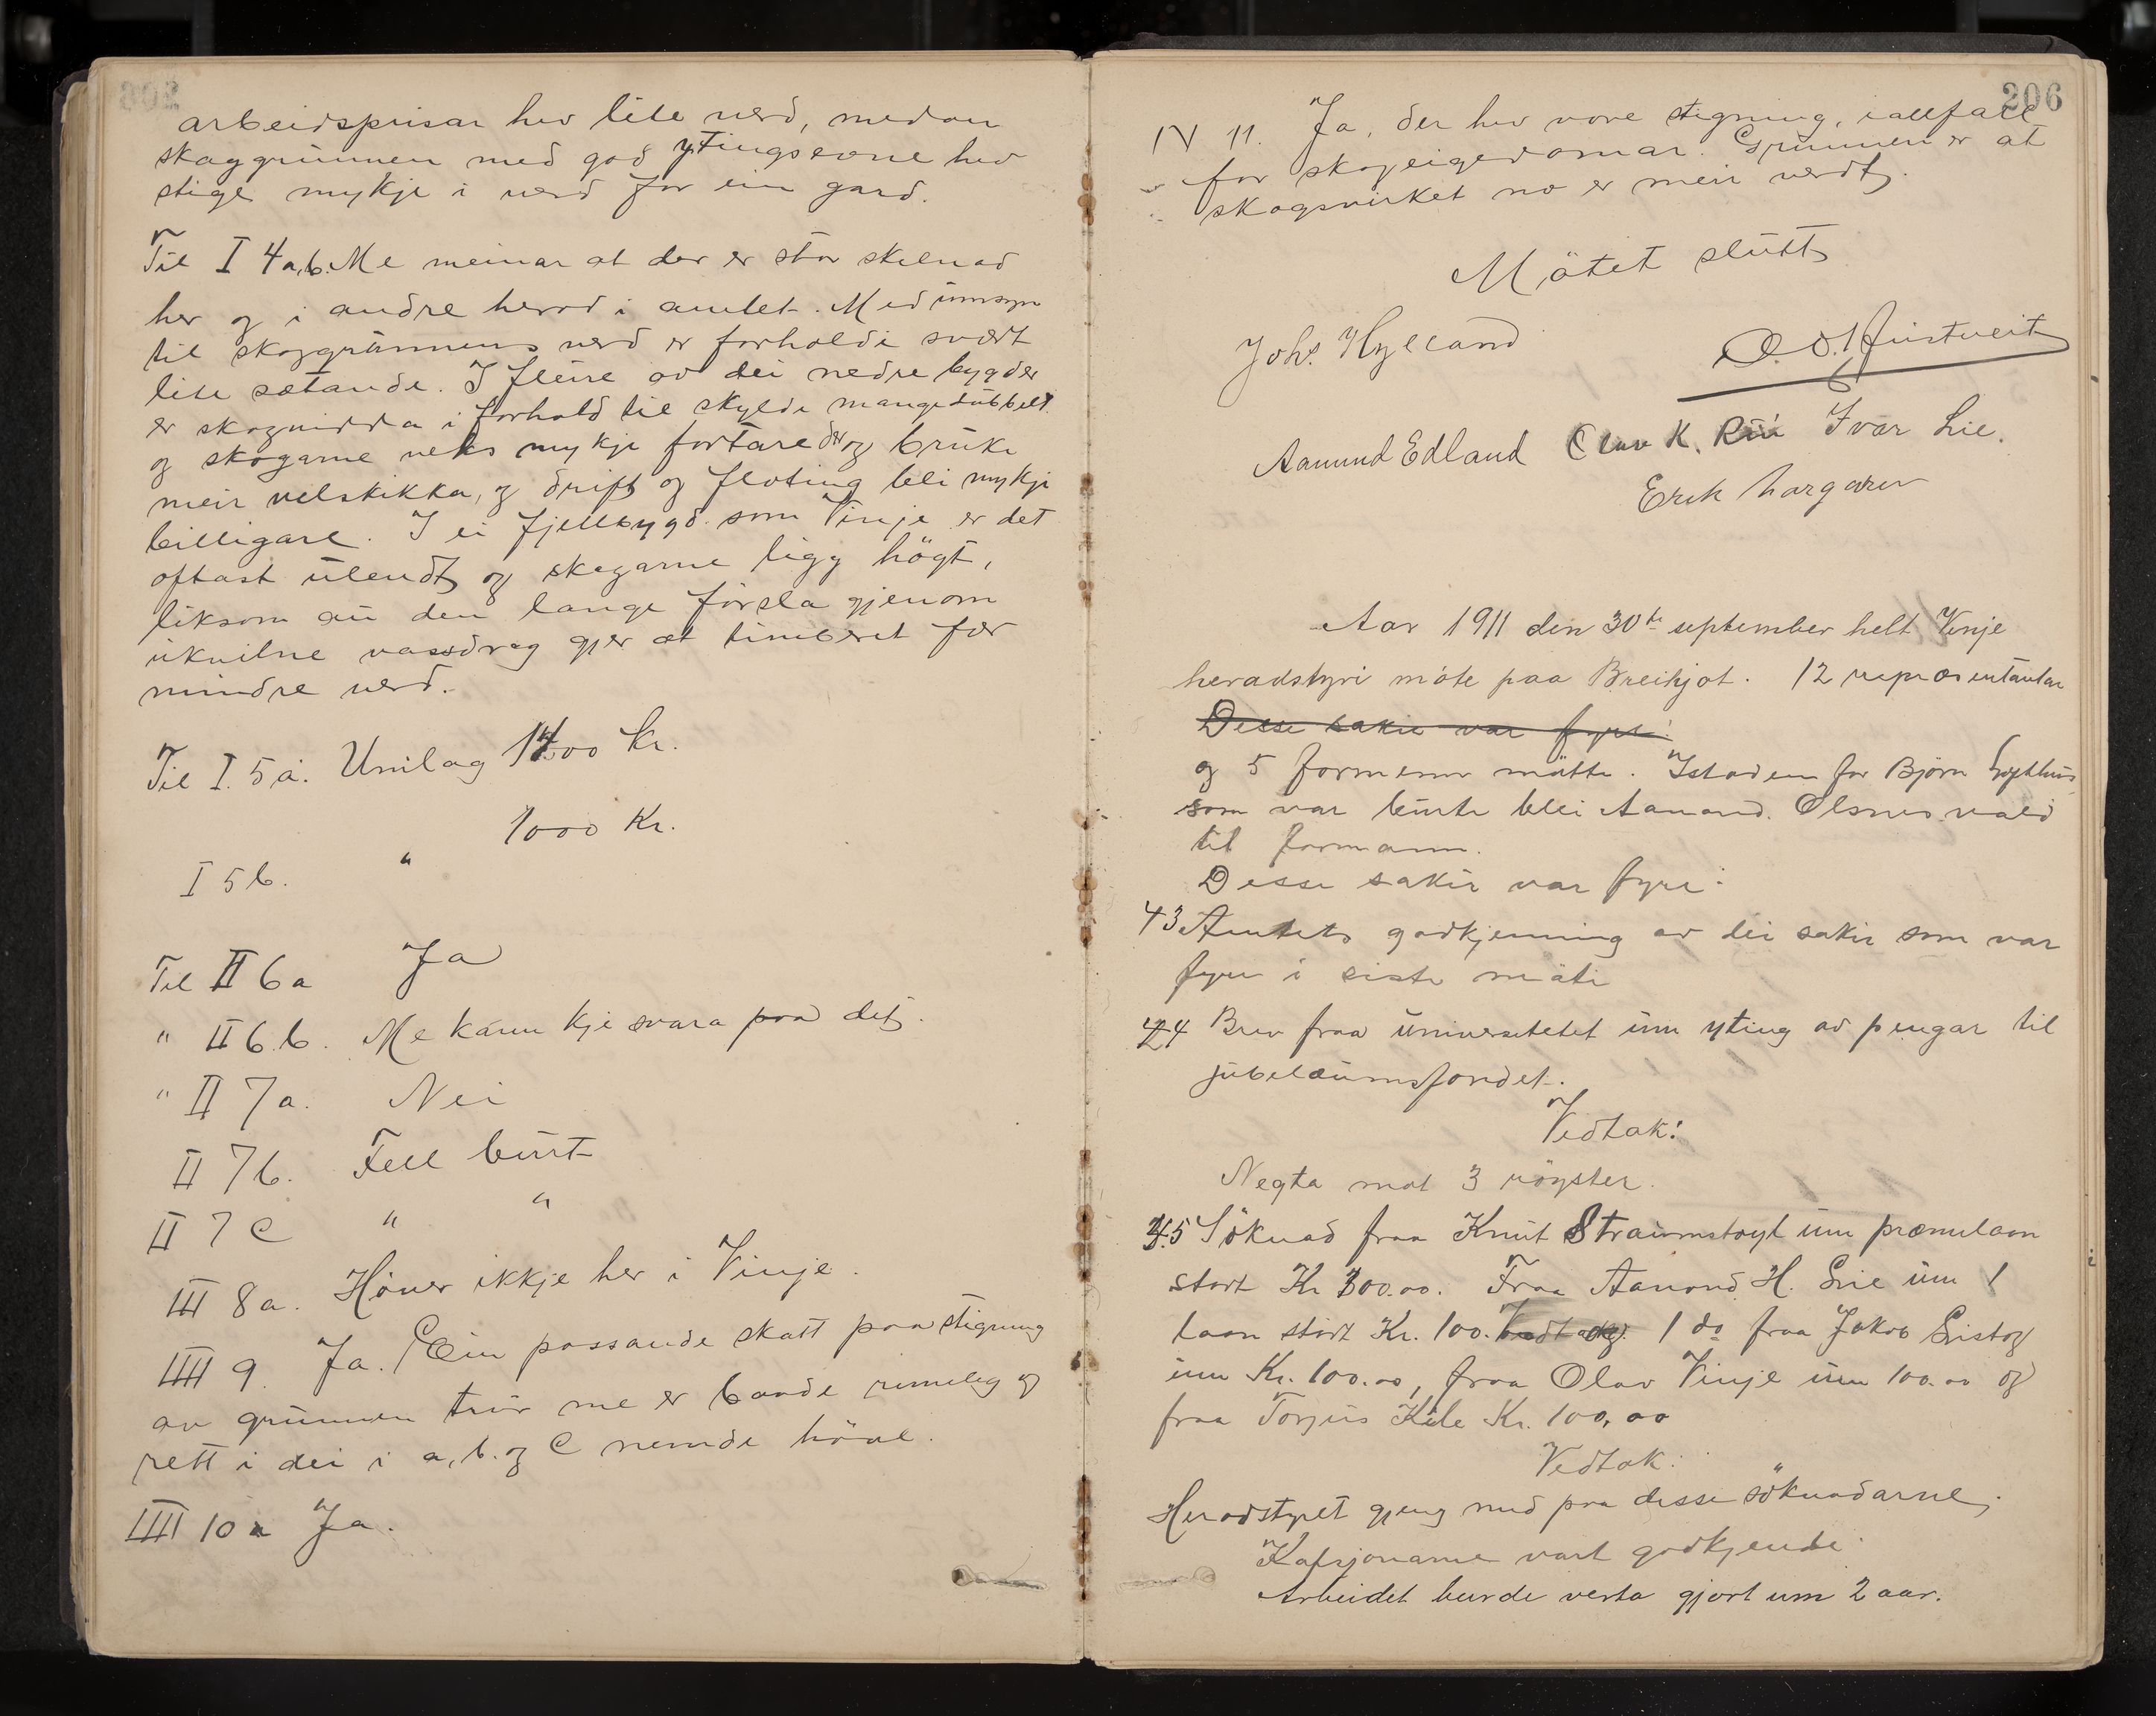 arbeidsprisar hev lite verd, medan
skoggrunnen med god ytingsevne hev
stige mykje i verd for ein gard.
Til I 4a,b. Me meinar at der er stor skilnad
her og i andre herad i amtet. Med umsyn
til skoggrunnens verd er forholdi svært
lite sætande. I fleire av dei nedre bygder
er skogvidda i forhold til skyldi mangedubbelt
og skogarne veks mykje fortare der og bruke
meir velskikka, og drift og fløting bli mykje
billigare. I ei fjellbygd som Vinje er det
oftast ulendt og skogarne ligg högt,
liksom au den lange forsla gjenom
ukvilne vassdrag gjer at timberet fær
mindre verd.
Til I. 5 a. Umlag 1400 kr.
1000 Kr.
I 5 b. "
Til II 6 a Ja
" II 6.b. Me kann kje svara paa det.
" II 7a. Nei
II 7b. Fell burt
II 7 c " "
III 8 a. Höver ikkje her i Vinje.
IIII 9. Ja. Ein passande skatt paa stigning
av grunnen trur me er baade rimeleg og
rett i dei i a, b. og c nemde höve.
IIII 10 a Ja.
206
IV 11. Ja, der hev vore stigning, iallfall
for skogeigedomar. Grunnen er at
skogsvirket no er meir verdt.
Mötet slutt
Johs. Hylland
Aamund Edland Olav K. Rui Ivar Lie.
Erik
Aar 1911 den 30te september helt Vinje
heradstyri möte paa Breihjot. 12 repræsentantar
Desse sakir var fyre:
og 5 formenn mötte. Istaden for Björn
som var burte blei Aanund Olsnes vald
til formann.
Desse sakir var fyre:
43 Amtets godkjenning av dei sakir som var
fyre i siste möte
44 Brev fraa universitetet um yting av pengar til
jubelæumsfondet.
Vedtak:
Negta mot 3 röyster.
45 Söknad fraa Knut Straumstøyl um præmielaan
stort Kr 300.00. Fraa Aanond H. Lie um 1
laan stort Kr. 100. 1 do fraa Jakob Listog
um Kr. 100.00, fraa Olav Vinje um 100.00 og
fraa Torjus Kile Kr. 100,00
Vedtak:
Heradstyret gjeng med paa desse söknadarne.
Kafsjonarne vart godkjende.
Arbeidet burde verta gjort um 2 aar.